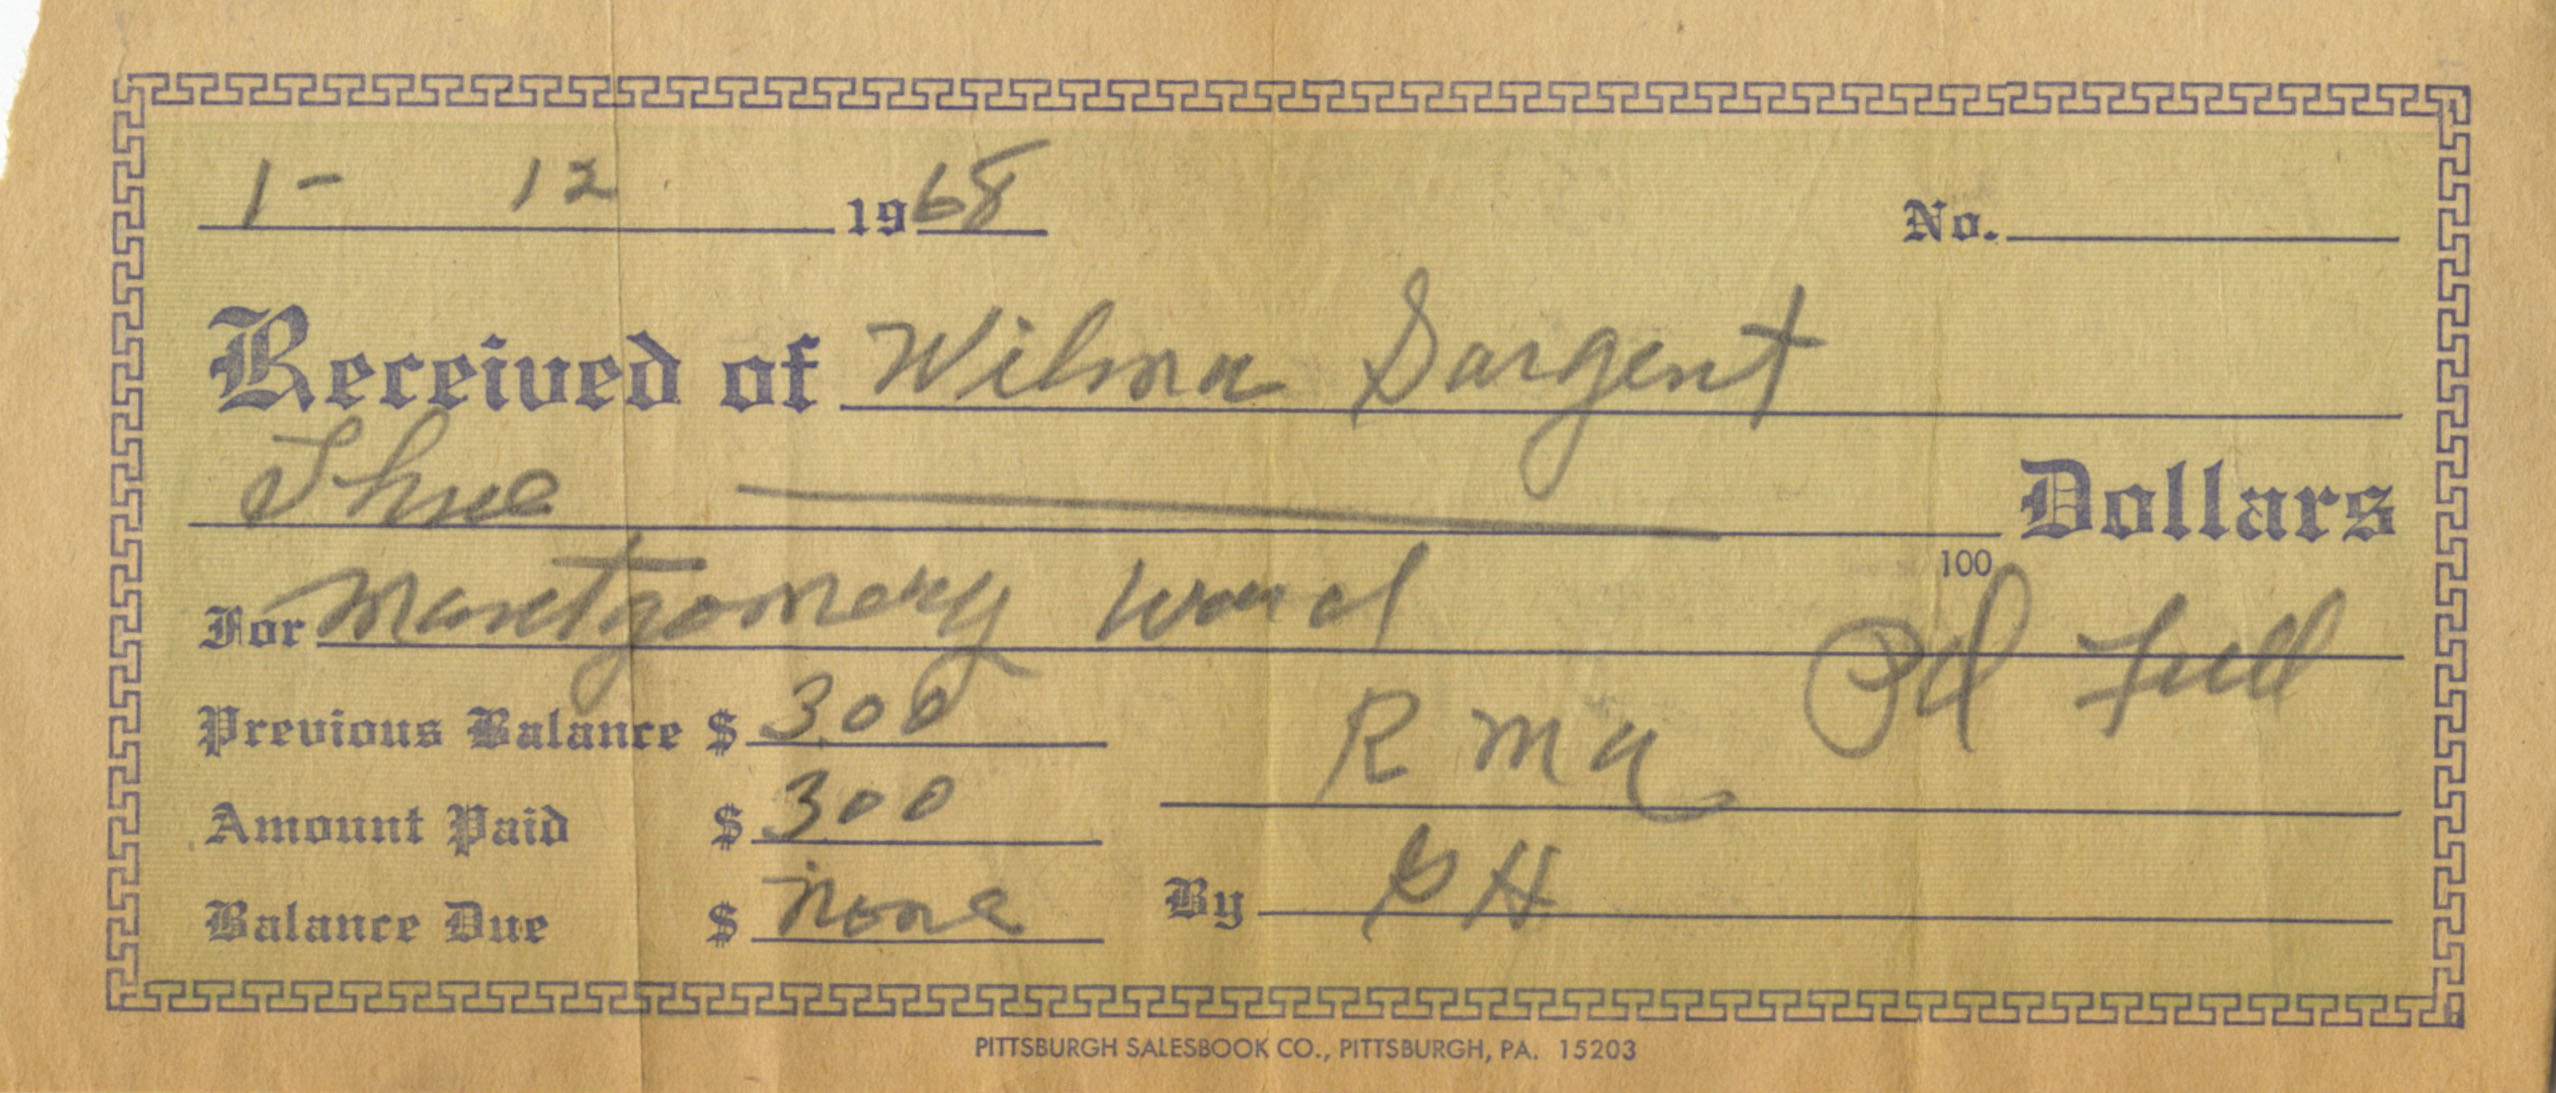 1- 12 1968 No.
Received of Wilma Sargent
Three Dollars
100
For Montgomery Ward Pd Full
Previous Balance $ 300
R M A
Amount Paid $ 300
Balance Due $ none By G H
PITTSBURGH SALESBOOK CO., PITTSBURGH, PA. 15203